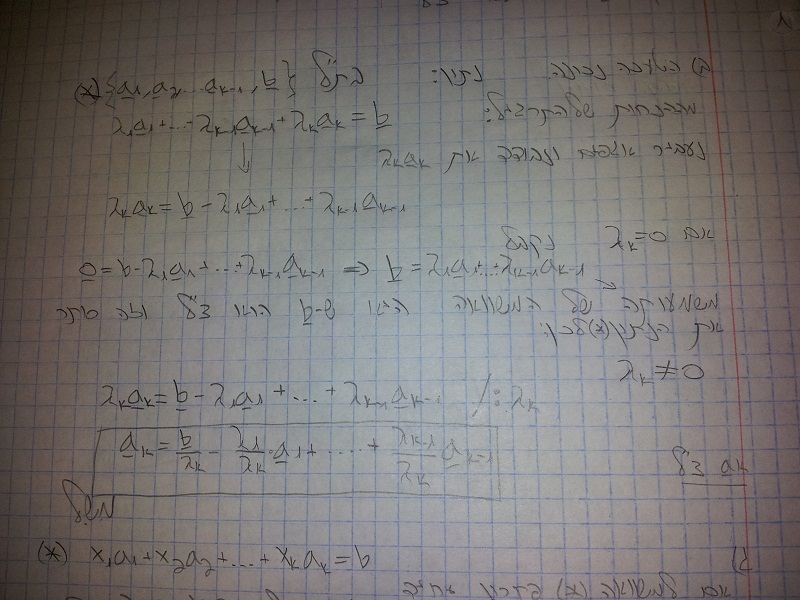 ב) הטענה נכונה. נתון: בת"ל {a1, a2 ... ak-1, b} (*)
λ1a1+...+λk-1ak-1+λkak = b
נעביר אגפים ונבודד את λkak
↓
λkak = b - λ1a1 + ... + λk-1ak-1
אם λk=0 נקבל
0 = b - λ1a1 + ... + λk-1ak-1 => b = λ1a1 + ... + λk-1ak-1
משמעותה של המשוואה היא ש-b הוא צ"ל וזה סותר
את הנתון (*) לכן:
λk ≠ 0
λkak = b - λ1a1 + ... + λk-1ak-1 /: λk
ak = b/λk - λ1/λk · a1 + .... + λk-1/λk ak-1
ak צ"ל
משל
(*) x1a1+x2a2+...+xkak = b
אם למשוואה (*) פתרון